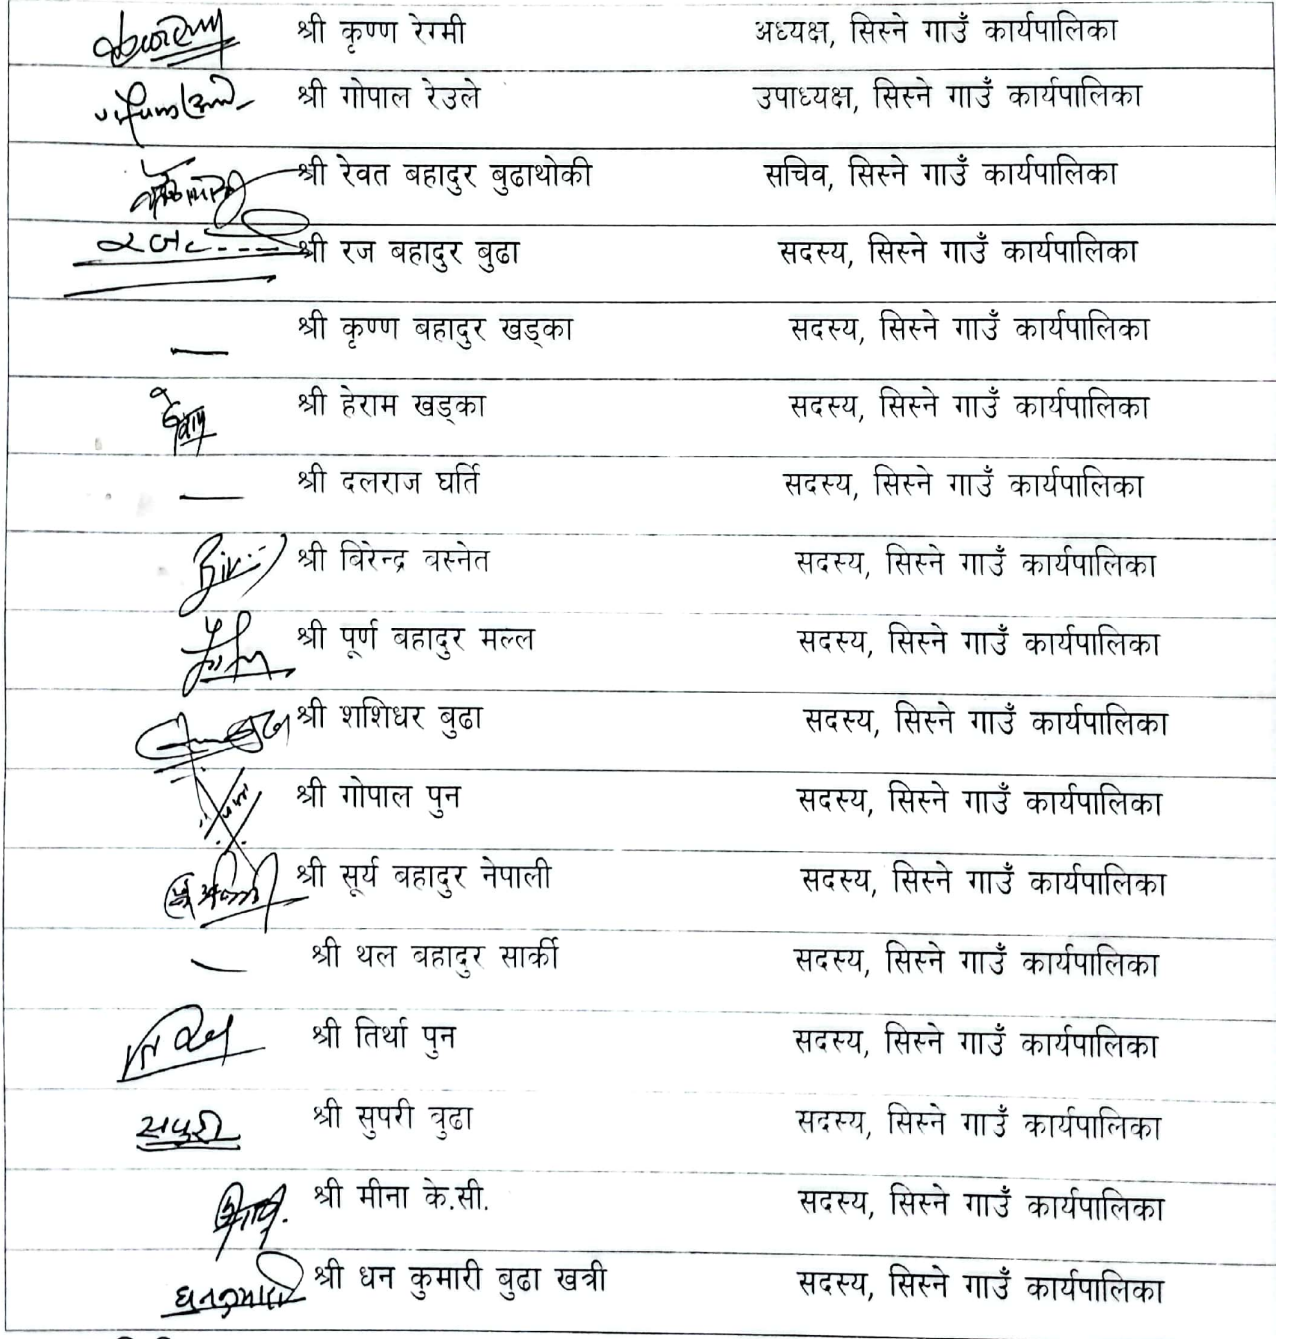 श्री कृष्ण रेग्मी अध्यक्ष, सिस्ने गाउँ कार्यपालिका
श्री गोपाल रेउले उपाध्यक्ष, सिस्ने गाउँ कार्यपालिका
श्री रेवत बहादुर बुढाथोकी सचिव, सिस्ने गाउँ कार्यपालिका
श्री रज बहादुर बुढा सदस्य, सिस्ने गाउँ कार्यपालिका
श्री कृष्ण बहादुर खड्का सदस्य, सिस्ने गाउँ कार्यपालिका
श्री हेराम खड्का सदस्य, सिस्ने गाउँ कार्यपालिका
श्री दलराज घर्ति सदस्य, सिस्ने गाउँ कार्यपालिका
श्री बिरेन्द्र वस्नेत सदस्य, सिस्ने गाउँ कार्यपालिका
श्री पूर्ण बहादुर मल्ल सदस्य, सिस्ने गाउँ कार्यपालिका
श्री शशिधर बुढा सदस्य, सिस्ने गाउँ कार्यपालिका
श्री गोपाल पुन सदस्य, सिस्ने गाउँ कार्यपालिका
श्री सूर्य बहादुर नेपाली सदस्य, सिस्ने गाउँ कार्यपालिका
श्री थल बहादुर सार्की सदस्य, सिस्ने गाउँ कार्यपालिका
श्री तिर्था पुन सदस्य, सिस्ने गाउँ कार्यपालिका
श्री सुपरी बुढा सदस्य, सिस्ने गाउँ कार्यपालिका
श्री मीना के.सी. सदस्य, सिस्ने गाउँ कार्यपालिका
धनकुमारी श्री धन कुमारी बुढा खत्री सदस्य, सिस्ने गाउँ कार्यपालिका